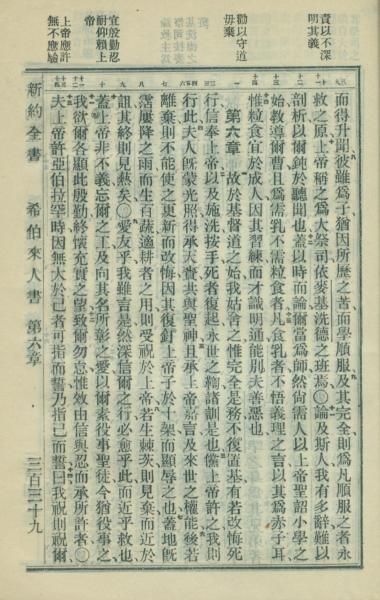 責以不深
明其義
勸以守道
毋棄
宜殷勤忍
耐仰賴上
帝
上帝應許
無不應驗
而得升聞彼雖爲子猶因所歷之苦而學順服及其完全則爲凡順服之者永
救之原上帝稱之爲大祭司依麥基洗德之班焉〇論及斯人我有多辭難以
剖析以爾鈍於聽聞也蓋以時而論爾當爲師然尙需人以上帝聖詔小學之
始教導爾曹且爲需乳不需粒食者凡食乳者不悟義理之言以其爲赤子耳
惟粒食宜於成人因其習練而才識明通能別夫善惡也
第六章 故於基督道之始我姑舍之惟完全是務不復置基有若改悔死
行信奉上帝以及施洗按手死者復起永世之鞫諸訓是也儻上帝許之我則
行此夫人旣蒙光照得承天賚共與聖神且承上帝嘉言及來世之權能後若
離棄則不能使之更新而改悔因其復釘上帝子於十架而顯辱之也蓋地旣
霑屢降之雨而生百蔬適耕者之用則受祝於上帝若生棘茨則見棄而近於
詛其終則見爇矣〇愛友乎我雖言是然深信爾之行必愈乎此而近乎救也
蓋上帝非不義忘爾之工及向其名所彰之愛以爾素役事聖徒今猶役事之
我欲爾各顯此殷勤終懷充實之望致爾勿怠惟效由信與忍而承所許者〇
夫上帝許亞伯拉罕時因無大於己者可指而誓乃指己而誓曰我祝則祝爾
新約全書 希伯來人書 第六章 三百三十九